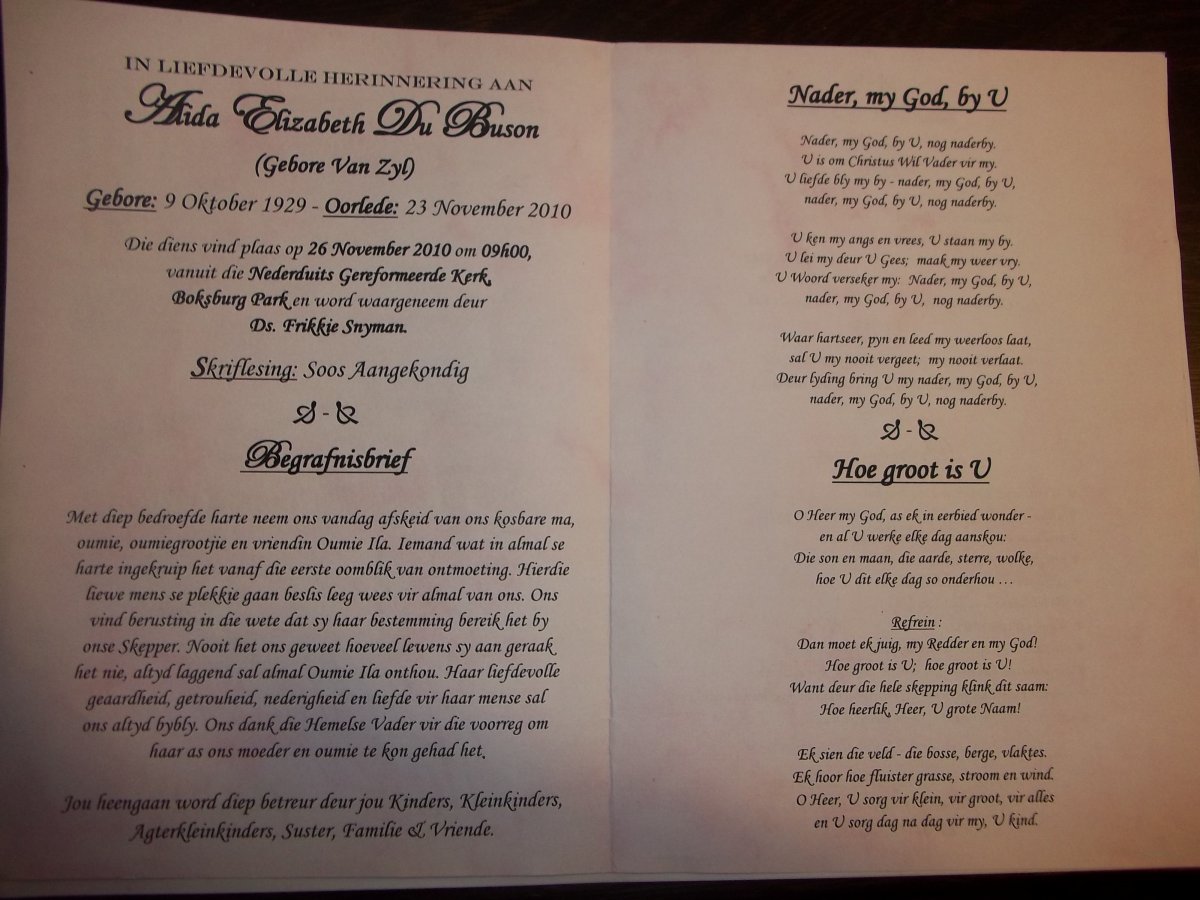 IN LIEFDEVOLLE HERINNERING AAN
Alida Elizabeth Du Buson
(Gebore Van Zyl)
Gebore: 9 Oktober 1929 - Oorlede: 23 November 2010
Die diens vind plaas op 26 November 2010 om 09h00,
vanuit die Nederduits Gereformeerde Kerk,
Boksburg Park en word waargeneem deur
Ds. Frikkie Snyman.
Skriflesing: Soos Aangekondig
-
Begrafnisbrief
Met diep bedroefde harte neem ons vandag afskeid van ons kosbare ma,
oumie, oumiegrootjie en vriendin Oumie Ila. Iemand wat in almal se
harte ingekruip het vanaf die eerste oomblik van ontmoeting. Hierdie
liewe mens se plekkie gaan beslis leeg wees vir almal van ons. Ons
vind berusting in die wete dat sy haar bestemming bereik het by
onse Skepper. Nooit het ons geweet hoeveel lewens sy aan geraak
het nie, altyd laggend sal almal Oumie Ila onthou. Haar liefdevolle
geaardheid, getrouheid, nederigheid en liefde vir haar mense sal
ons altyd bybly. Ons dank die Hemelse Vader vir die voorreg om
haar as ons moeder en oumie te kon gehad het.
Jou heengaan word diep betreur deur jou Kinders, Kleinkinders,
Agterkleinkinders, Suster, Familie & Vriende.
Nader, my God, by U
Nader, my God, by U, nog naderby.
U is om Christus Wil Vader vir my.
U liefde bly my by - nader, my God, by U,
nader, my God, by U, nog naderby.
U ken my angs en vrees, U staan my by.
U lei my deur U Gees; maak my weer vry.
U Woord verseker my: Nader, my God, by U,
nader, my God, by U, nog naderby.
Waar hartseer, pyn en leed my weerloos laat,
sal U my nooit vergeet; my nooit verlaat.
Deur lyding bring U my nader, my God, by U,
nader, my God, by U, nog naderby.
-
Hoe groot is U
O Heer my God, as ek in eerbied wonder -
en al U werke elke dag aanskou:
Die son en maan, die aarde, sterre, wolke,
hoe U dit elke dag so onderhou ...
Refrein :
Dan moet ek juig, my Redder en my God!
Hoe groot is U; hoe groot is U!
Want deur die hele skepping klink dit saam:
Hoe heerlik, Heer, U grote Naam!
Ek sien die veld - die bosse, berge, vlaktes.
Ek hoor hoe fluister grasse, stroom en wind.
O Heer, U sorg vir klein, vir groot, vir alles
en U sorg dag na dag vir my, U kind.